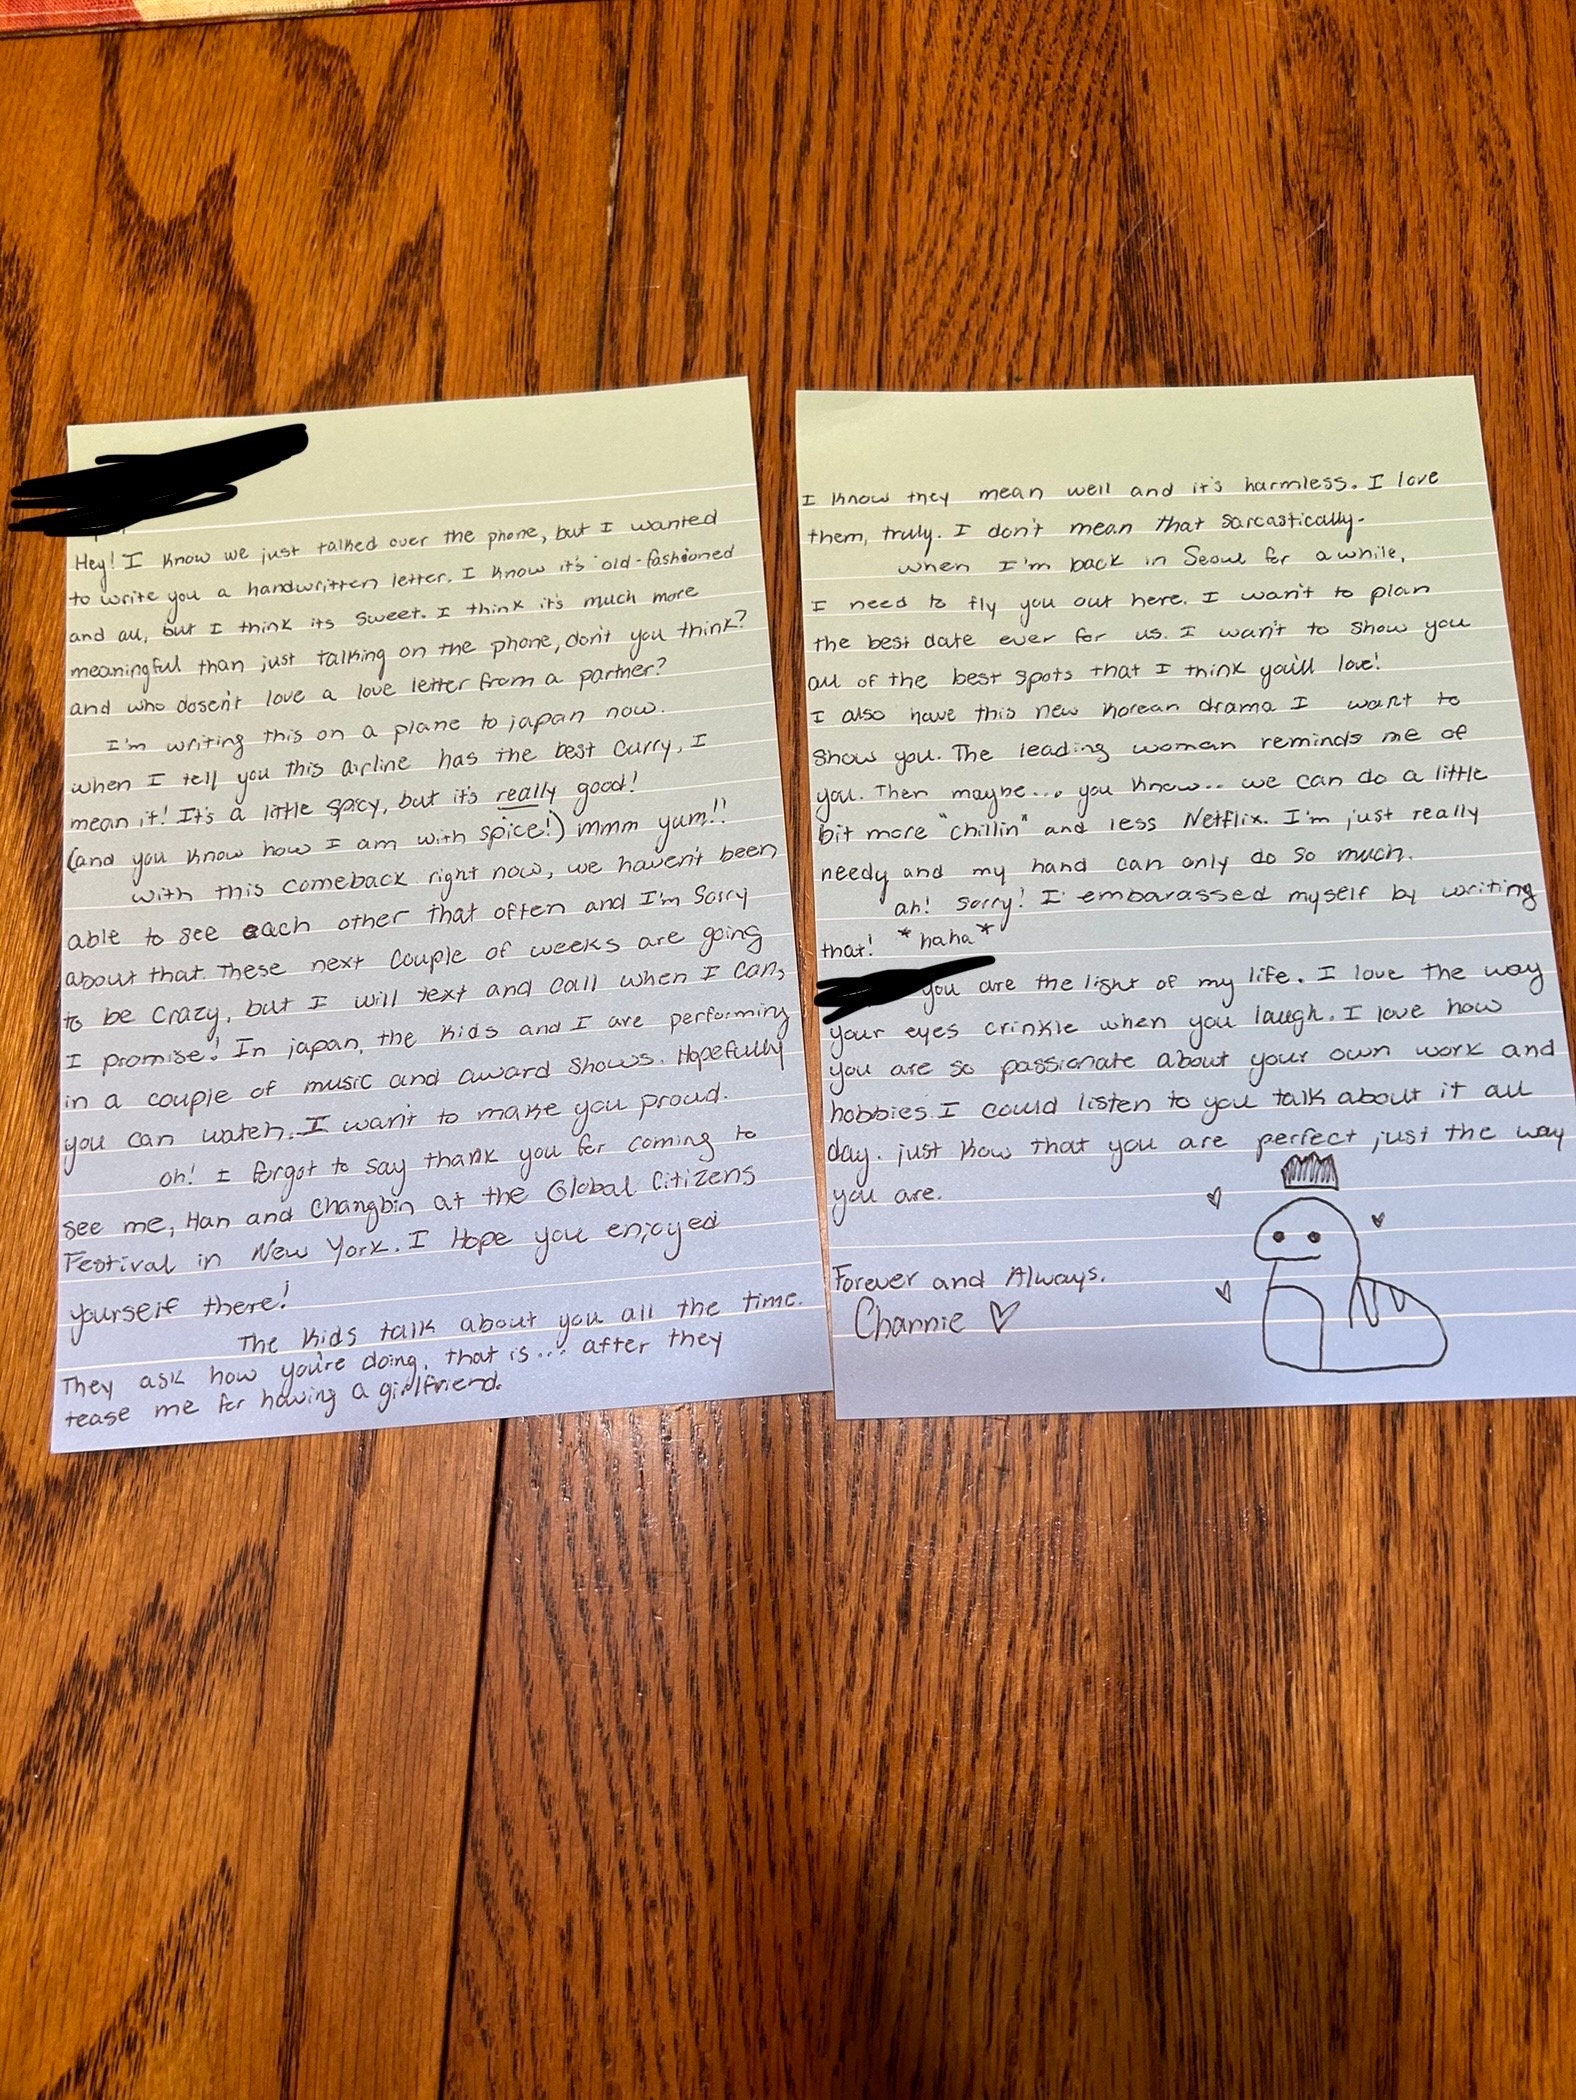 Hey! I know we just talked over the phone, but I wanted
to write you a handwritten letter. I know it's old-fashioned
and all, but I think its sweet. I think it's much more
meaningful than just talking on the phone, don't you think?
and who dosen't love a love letter from a partner?
I'm writing this on a plane to japan now.
when I tell you this airline has the best curry, I
mean it! It's a little spicy, but it's really good!
(and you know how I am with spice!) mmm yum!!
with this comeback right now, we haven't been
able to see each other that often and I'm sorry
about that. These next couple of weeks are going
to be crazy, but I will text and call when I can,
I promise! In japan, the kids and I are performing
in a couple of music and award shows. Hopefully
you can watch. I want to make you proud.
oh! I forgot to say thank you for coming to
see me, Han and Changbin at the Global Citizens
Festival in New York. I Hope you enjoyed
yourself there!
The kids talk about you all the time.
They ask how you're doing, that is... after they
tease me for having a girlfriend.
I know they mean well and it's harmless. I love
them, truly. I don't mean that sarcastically.
when I'm back in Seoul for awhile,
I need to fly you out here. I want to plan
the best date ever for us. I want to show you
all of the best spots that I think you'll love!
I also have this new korean drama I want to
show you. The leading woman reminds me of
you. Then maybe... you know... we can do a little
bit more "chillin" and less Netflix. I'm just really
needy and my hand can only do so much.
ah! sorry! I embarassed myself by writing
that! *haha*
you are the light of my life. I love the way
your eyes crinkle when you laugh. I love how
you are so passionate about your own work and
hobbies. I could listen to you talk about it all
day. just know that you are perfect just the way
you are.
Forever and Always.
Channie ♡